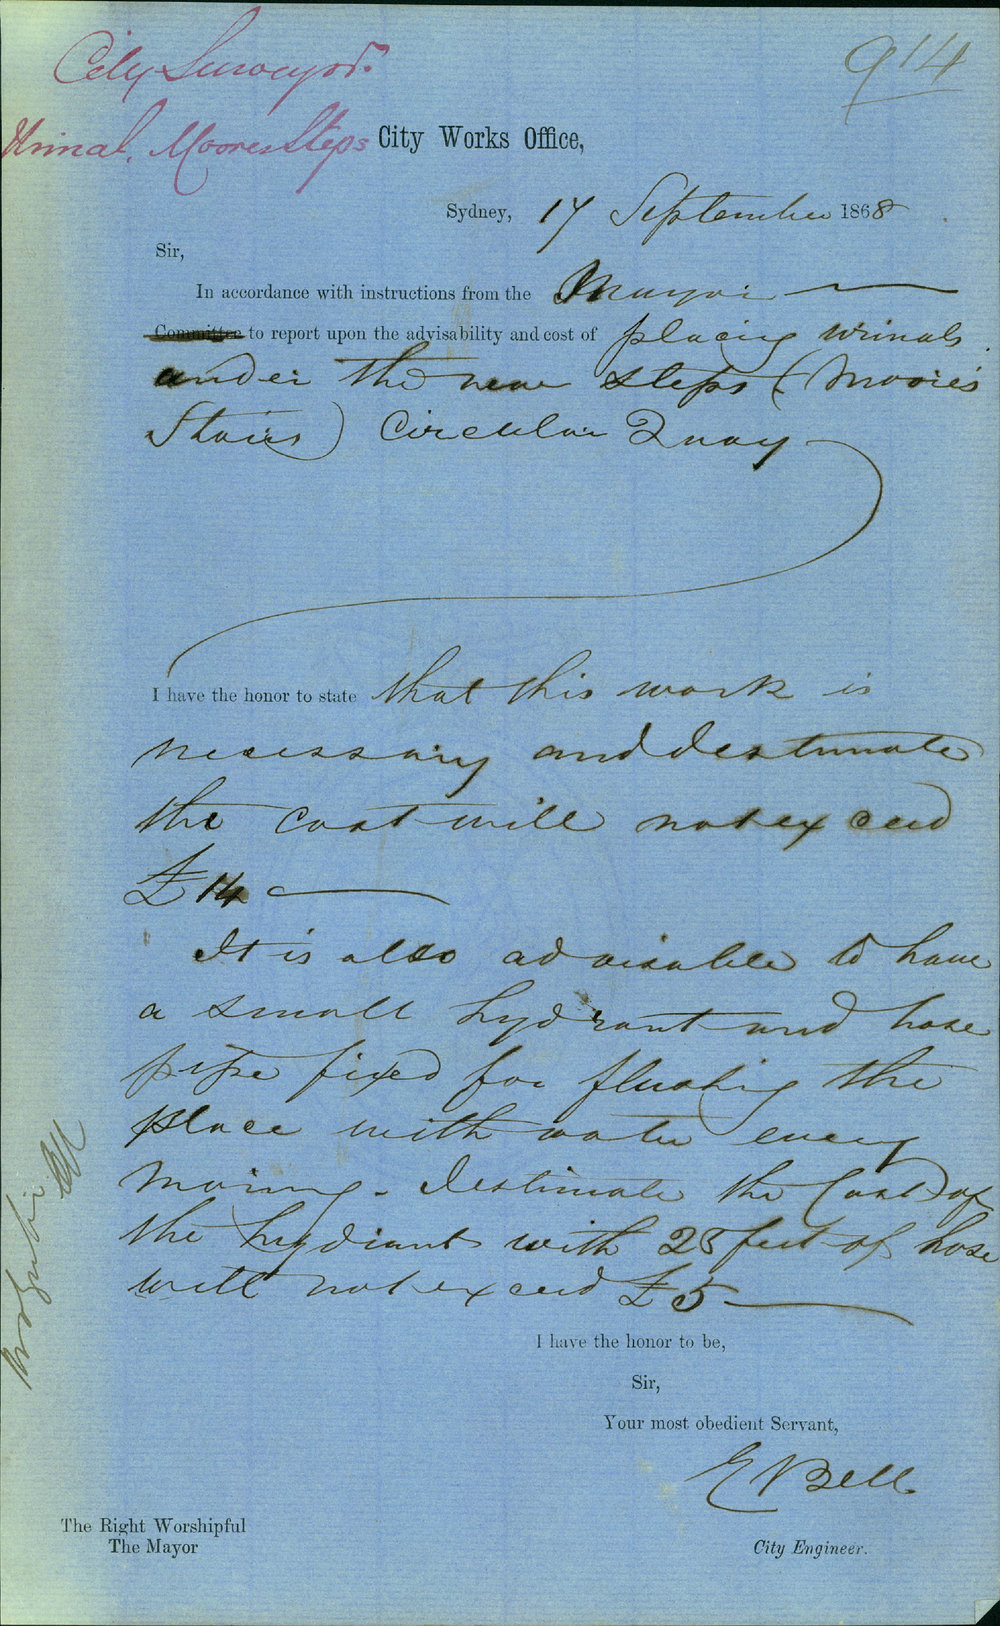 City Surveyor.
914
Urinal. Moores Steps
City Works Office,
Sydney, 17 September 1868
Sir,
In accordance with instructions from the Mayor
Committee to report upon the advisability and cost of placing urinals
under the new steps (Moore's
Stairs) Circular Quay
I have the honor to state that this work is
necessary and I estimate
the cost will not exceed
£14
It is also advisable to have
a small hydrant and hose
pipe fixed for flushing the
place with water every
morning. I estimate the Cost of
the hydrant with 25 feet of hose
will not exceed £5
I have the honor to be,
Sir,
Your most obedient Servant,
E Bell
The Right Worshipful
The Mayor
City Engineer.